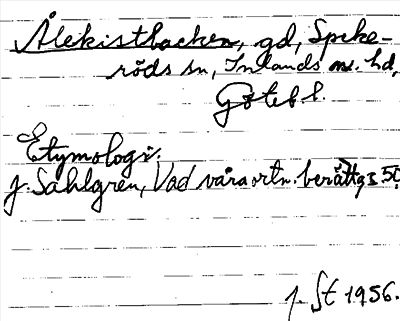 Ålekistbacken, gd, Speke-
röds sn, Inlands n. hd,
Göteb l.
Etymologi.
J. Sahlgren, Vad våra ortn. berätta s. 50
J. St 1956.